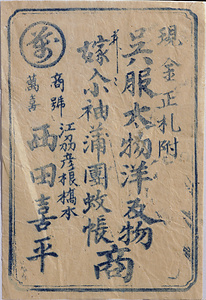 現金正札附
呉服太物洋反物
嫁入小袖蒲團蚊帳
商
萬
商號
萬喜
江刕彦根橋本
西田喜平